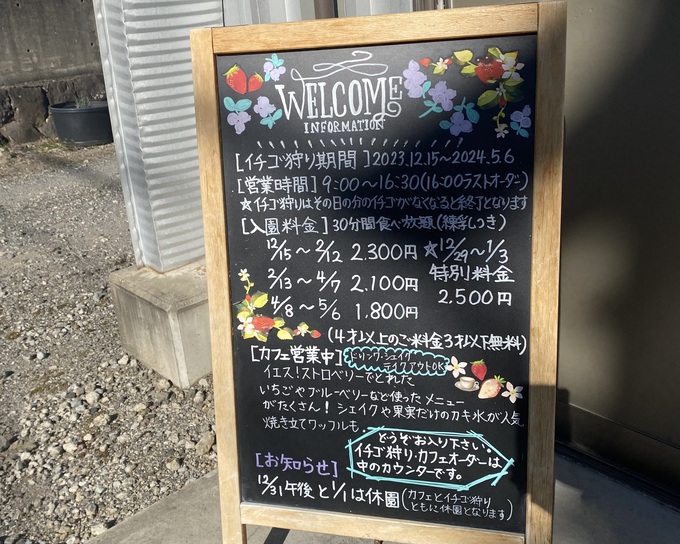 WELCOME
INFORMATION
[イチゴ狩り期間]2023.12.15～2024.5.6
[営業時間]9:00～16:30(16:00ラストオーダー)
☆イチゴ狩りはその日の分のイチゴがなくなると終了となります
[入園料金]30分間食べ放題(練乳つき)
12/15～2/12 2,300円
2/13～4/7 2,100円
4/8～5/6 1,800円
☆12/29～1/3
特別料金
2,500円
(4才以上のご料金3才以下無料)
[カフェ営業中]
ドリンク・シェイク
テイクアウトOK
イエス!ストロベリーでとれた
いちごやブルーベリーなど使ったメニュー
がたくさん! シェイクや果実だけのカキ氷が人気
焼き立てワッフルも.
どうぞお入り下さい。
イチゴ狩り・カフェオーダーは
中のカウンターです。
[お知らせ]
12/31午後と1/1は休園(カフェとイチゴ狩り
ともに休園となります)